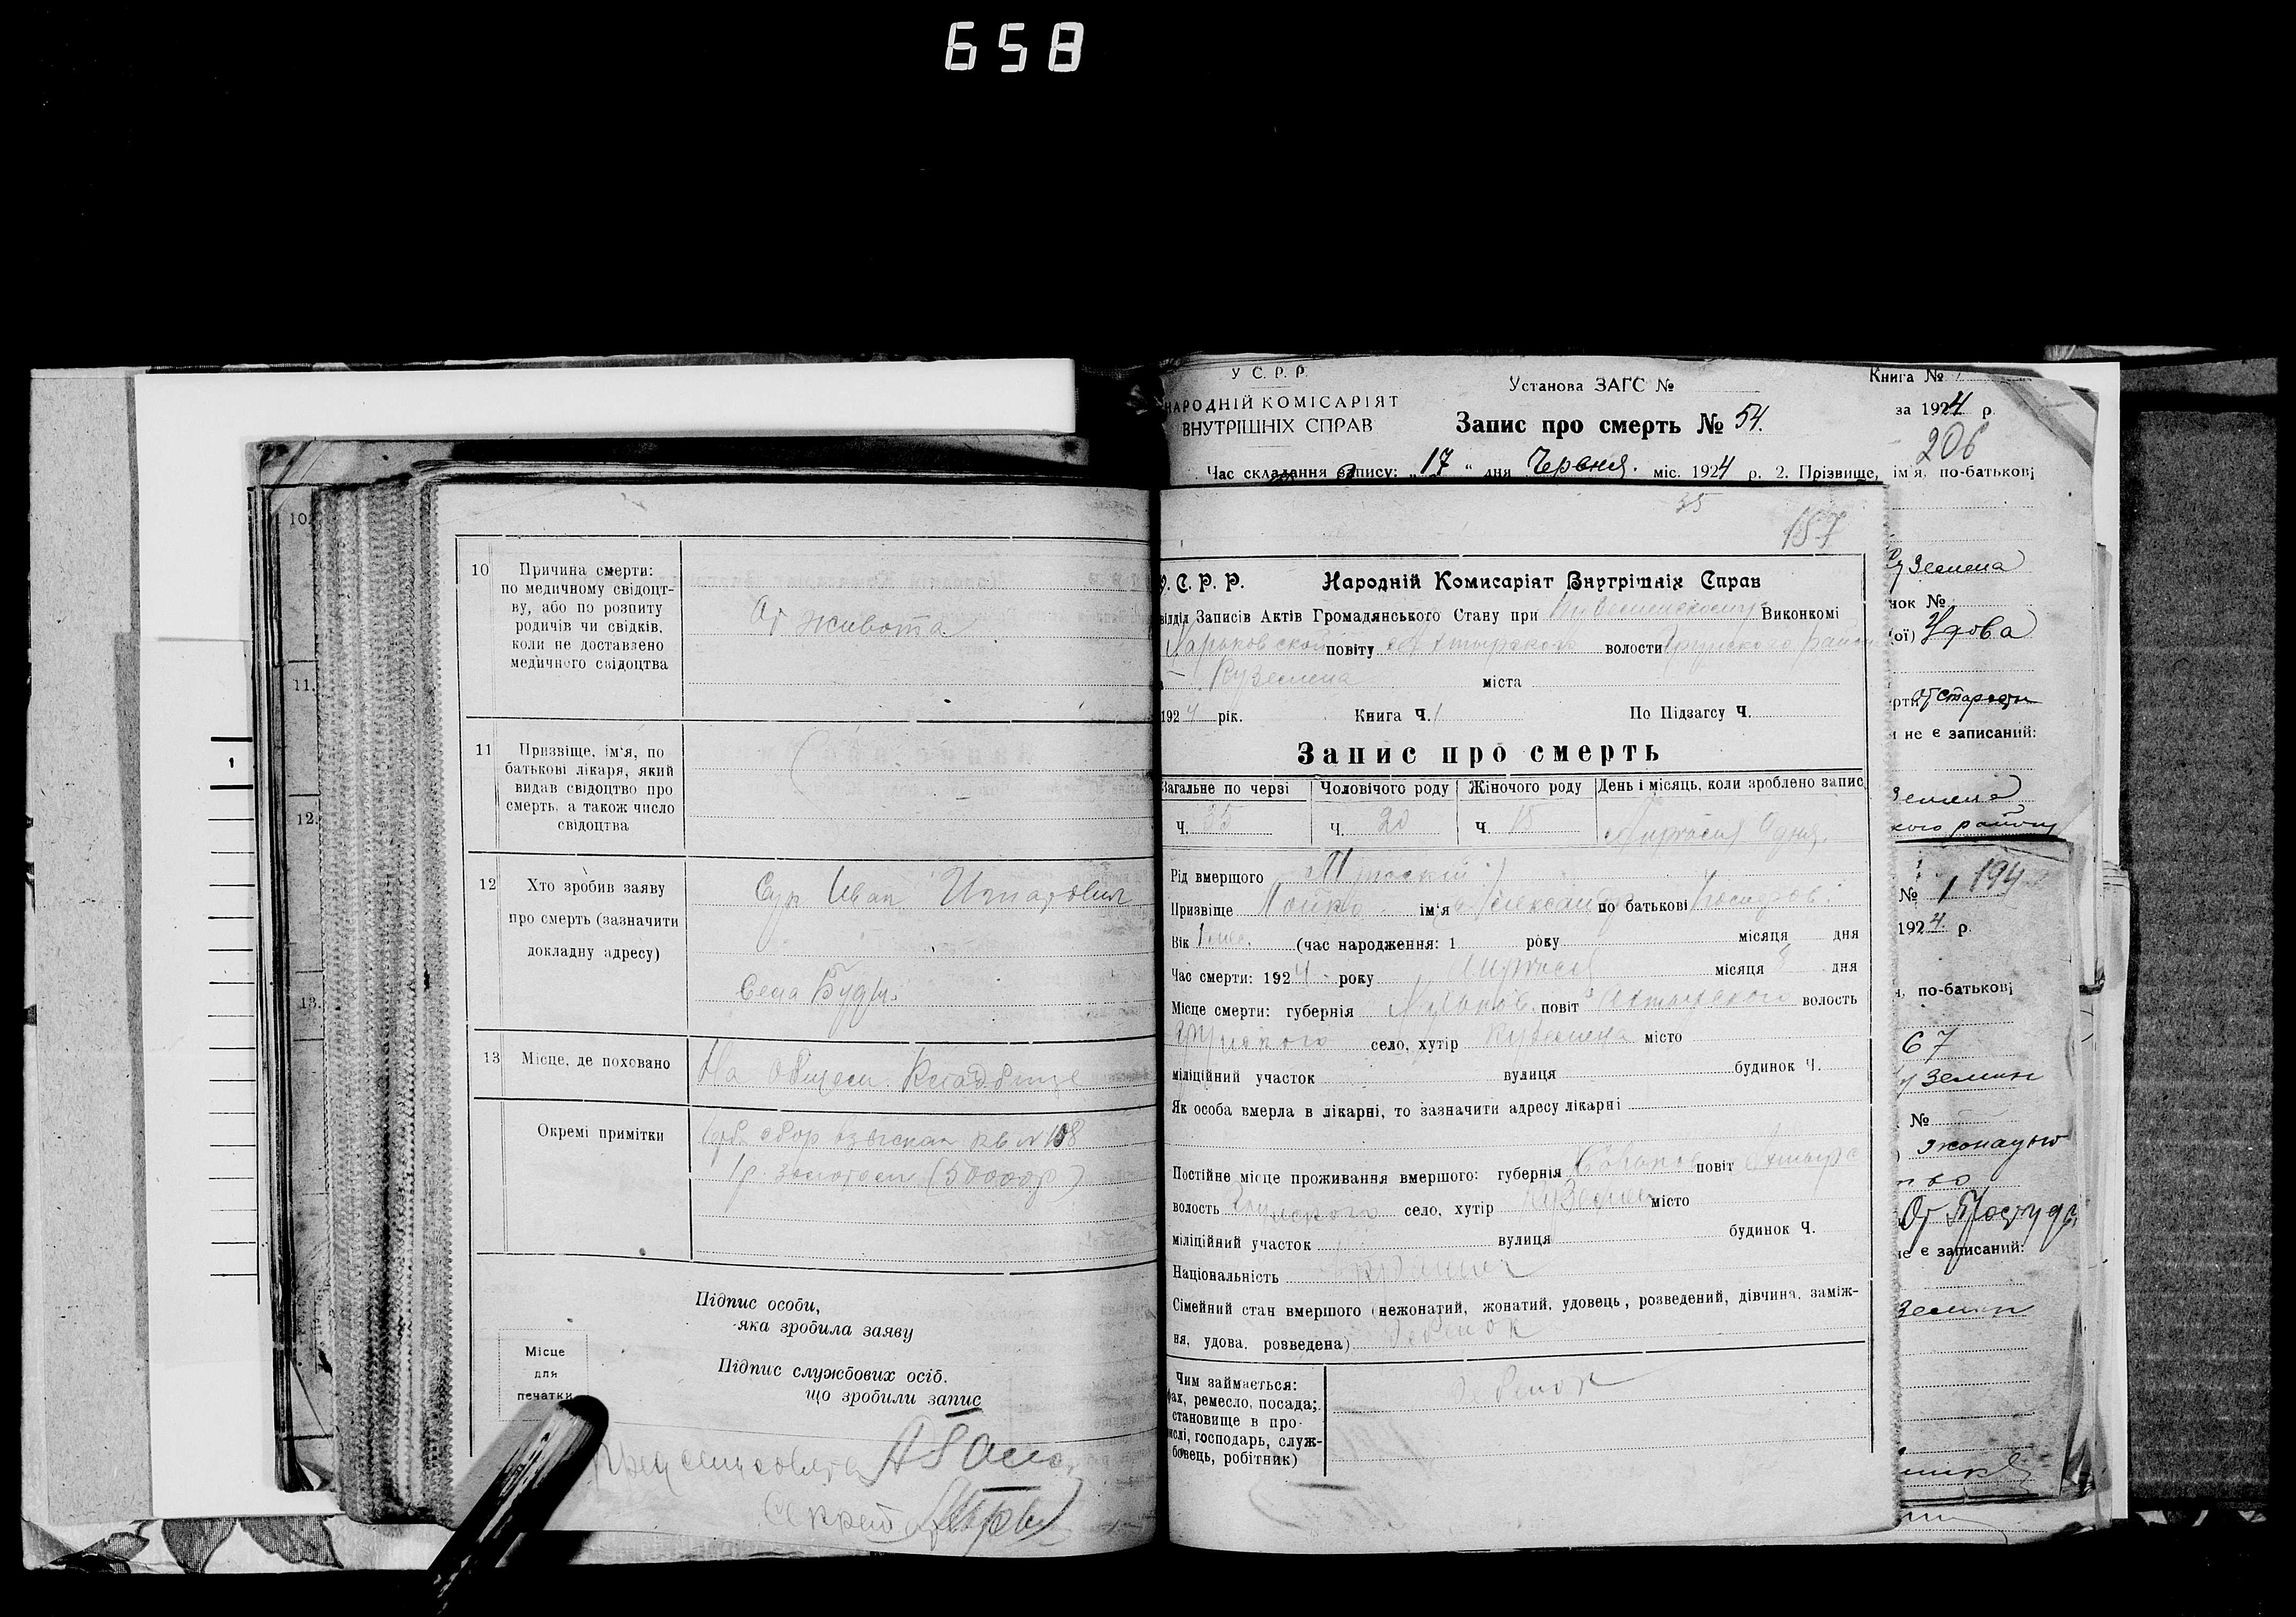 658
10
Причина смерти:
по медичному свідоцт-
ву, або по розпиту
родичів чи свідків,
коли не доставлено
медичного свідоцтва
От живота
11
Призвіще, ім'я, по
батькові лікаря, який
видав свідоцтво про
смерть, а також число
свідоцтва
12
Хто зробив заяву
про смерть (зазначити
докладну адресу)
Сур Иван Игнатович
Села Буды.
13
Місце, де поховано
На общем. Кладбище
Окремі примітки
сбор взыскан кв N 108
1 р. золотом (50000р)
Підпис особи,
яка зробила заяву
Місце
для
печатки
Підпис службових осіб.
що зробили запис
10.
11.
12.
13.
У С. Р. Р.
НАРОДНІЙ КОМІСАРІЯТ
ВНУТРІШНІХ СПРАВ
Установа ЗАГС №
Запис про смерть № 54.
Книга №
за 1924 р.
206
Час складання запису: „17“ дня Червня. міс. 1924 р. 2. Прізвище, ім'я, по-батькові
35
187
У. С. Р. Р. Народній Комисаріят Внутрішніх Справ
відділ Записів Актів Громадянського Стану при Виконкомі
Харьковской повіту Ахтырского волости Грунского район
Куземена міста
1924 рік. Книга Ч. 1 По Підзагсу Ч.
Запис про смерть
Загальне по черзі Чоловічого роду Жіночого роду День і місяць, коли зроблено запис
Ч. 35 Ч. 20 Ч. 15 9 дня.
Рід вмерщого Мужской
Призвіще ім'я Александр по батькові
Вік (час народження: 1 року місяця дня
Час смерти: 1924 року місяця 8 дня
Місце смерти: губернія Харьков. повіт Ахтырского волость
Грунского село, хутір Куземена місто
міліційний участок вулиця будинок Ч.
Як особа вмерла в лікарні, то зазначити адресу лікарні
Постійне місце проживання вмершого: губернія Харьков повіт Ахтырс
волость Грунского село, хутір Куземен місто
міліційний участок вулиця будинок Ч.
Національність
Сімейний стан вмершого (нежонатий, жонатий, удовець, розведений, дівчина, заміж-
ня, удова, розведена) Ребенок
Чим займається:
фах, ремесло, посада;
становище в про-
мислі, господарь, служ-
бовець, робітник)
Ребенок
уземена
нок №
(ої) Удова
рти От старости
и не є записаний:
земена
кого району
№ 1 194
1924 р.
я, по-батькові
67
уземин
№
жонатый
От Простуды
не є записаний:
земин